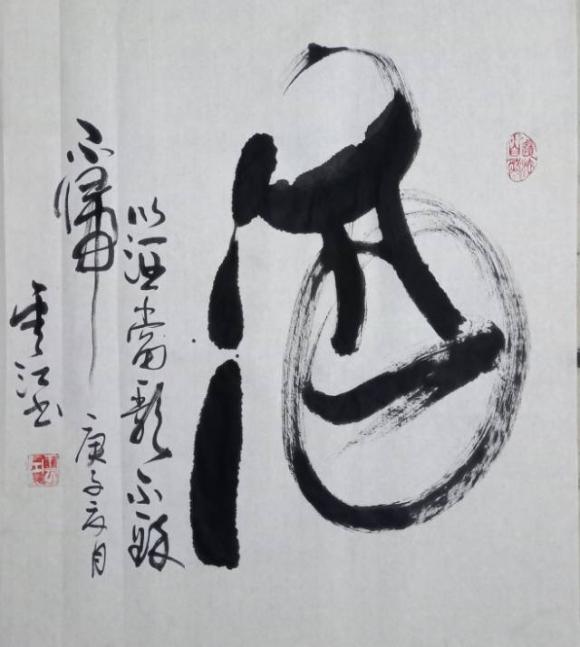 酒
以酒當歌不醉
不歸
庚子 月
雲江书